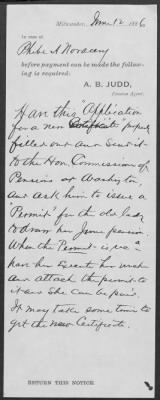 Milwaukee, June 12 1886
In case of
Phebe A
before payment can be made the follow-
ing is required:
A. B. JUDD,
Pension Agent.
Have this "Application
for a new Certificate" properly
filled out and send it
to the Hon Commissioner of
Pensions at Washington
and ask him to issue a
"Permit" for the old lady
to draw her June pension.
When the Permit is
have her Execute her voucher
and attach the permit to
it and She can be paid.
It may take some time to
get the new Certificate.
RETURN THIS NOTICE.